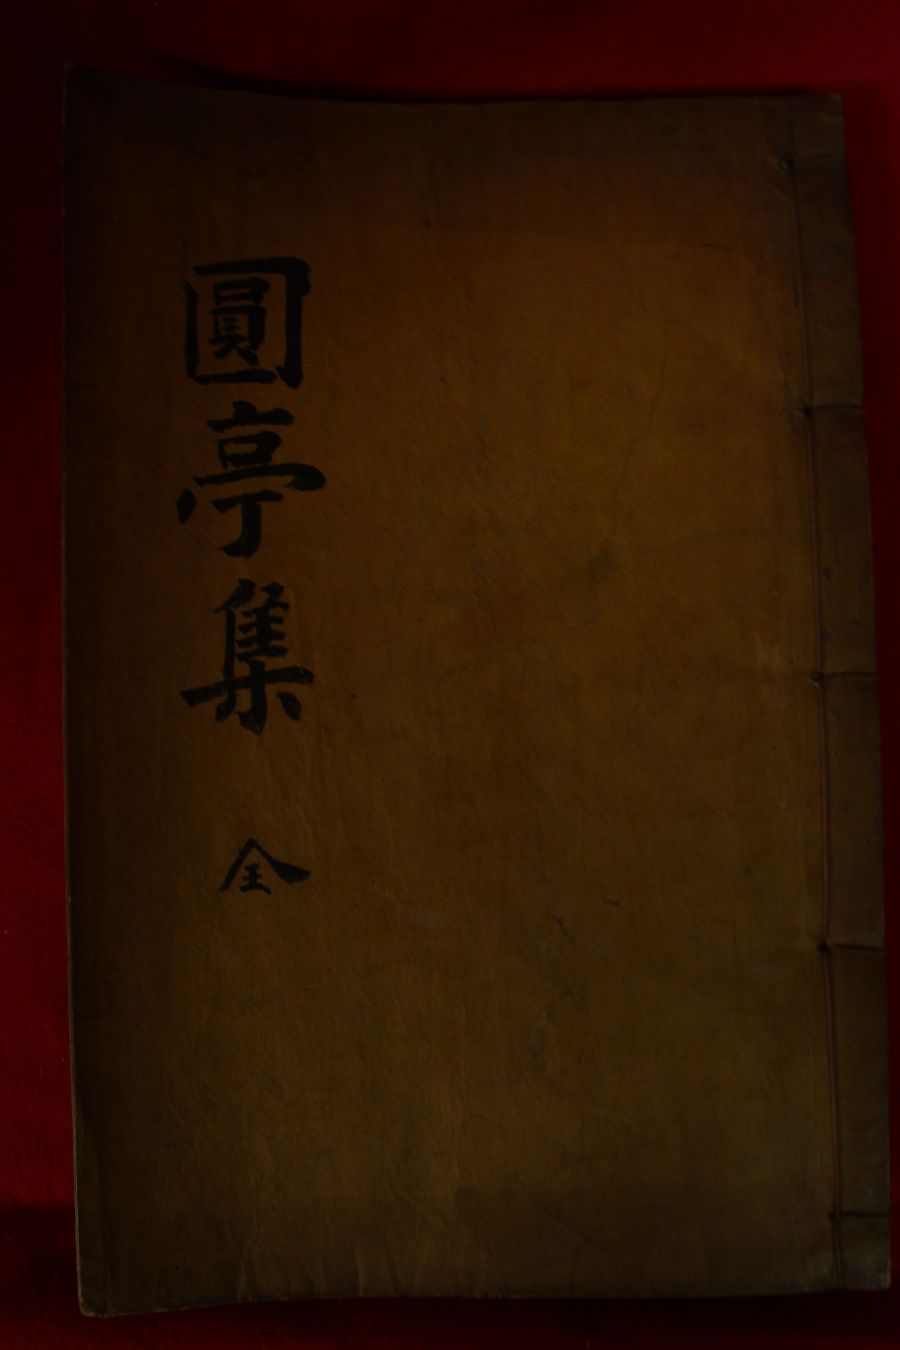 圓亭集
全